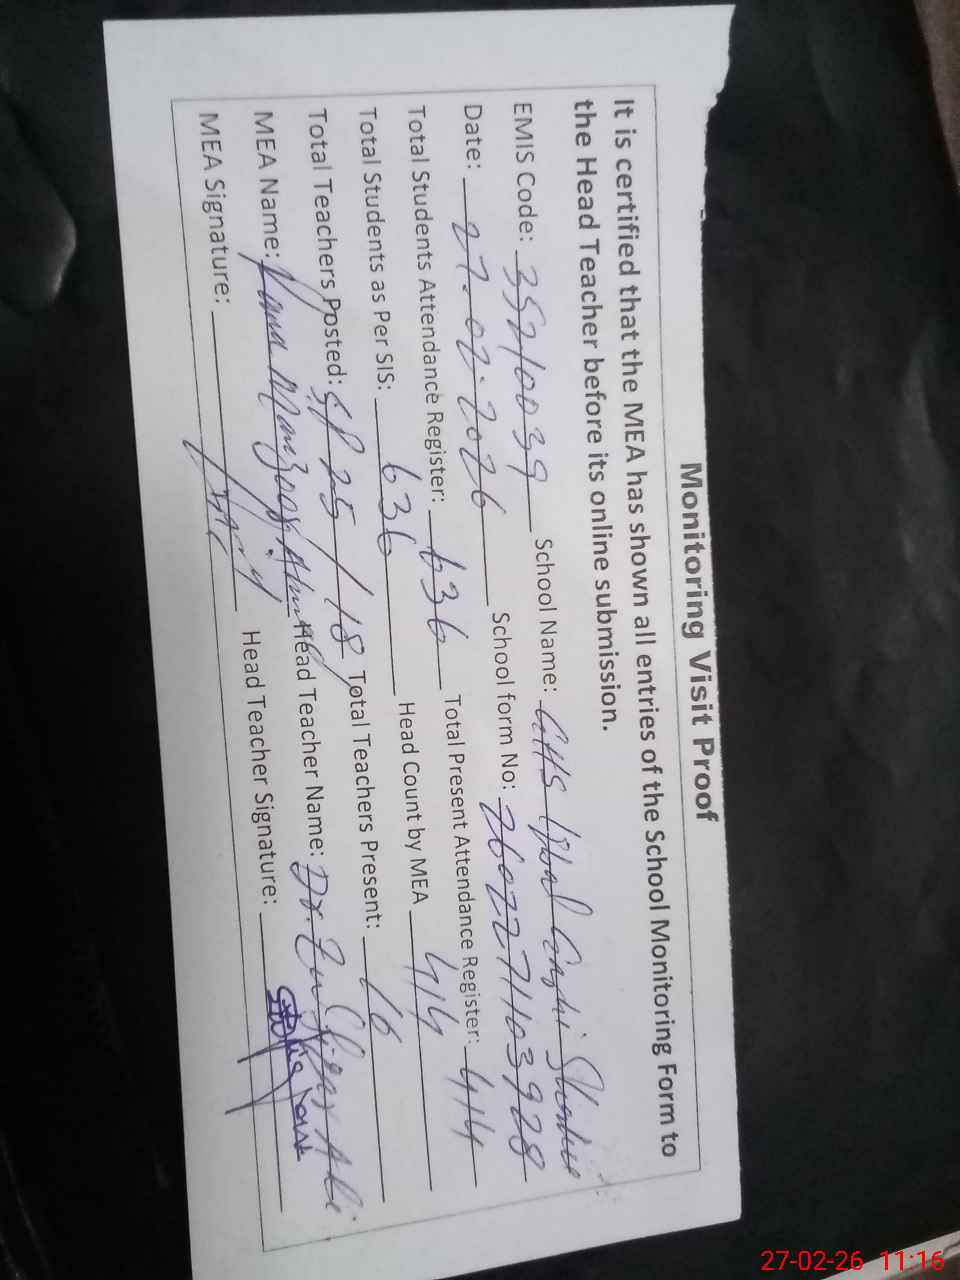 Monitoring Visit Proof
It is certified that the MEA has shown all entries of the School Monitoring Form to
the Head Teacher before its online submission.
EMIS Code: 35210039 School Name: GHS Iqbal
Date: 27.02.2026 School form No: 2602271103928
Total Students Attendance Register: 636 Total Present Attendance Register: 414
Total Students as Per SIS: 636 Head Count by MEA 414
Total Teachers Posted: SP 25/18 Total Teachers Present: 16
MEA Name: Rana Manzoor Ahmed Head Teacher Name: Dr. Zulfiqar Ali
MEA Signature: Head Teacher Signature:
27-02-26 11:16